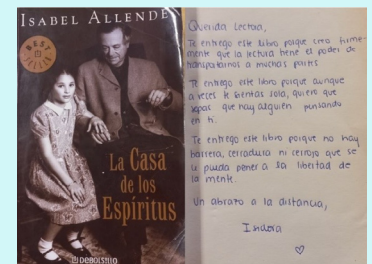 ISABEL ALLENDE
BEST
SELLER
La Casa
de los
Espíritus
DEBOLS!LLO
Querida Lectora,
Te entrego este libro porque creo firme-
mente que la lectura tiene el poder de
transportarnos a muchas partes
Te entrego este libro porque aunque
a veces te sientas sola, quiero que
sepas que hay alguien pensando
en ti.
Te entrego este libro porque no hay
barrera, cerradura ni cerrojo que se
le pueda poner a la libertad de
la mente.
Un abrazo a la distancia,
Isidora